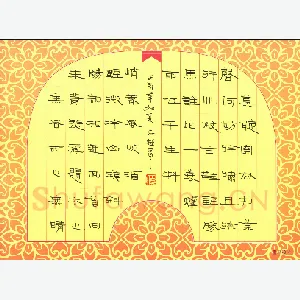 莫聽穿林打葉
聲何妨吟嘯且徐
行竹杖芒鞋輕勝
馬誰怕一蓑煙
雨任平生料
峭春風吹酒
醒微冷山頭斜
照卻相迎回首向
來蕭瑟處歸去也
無風雨也無晴